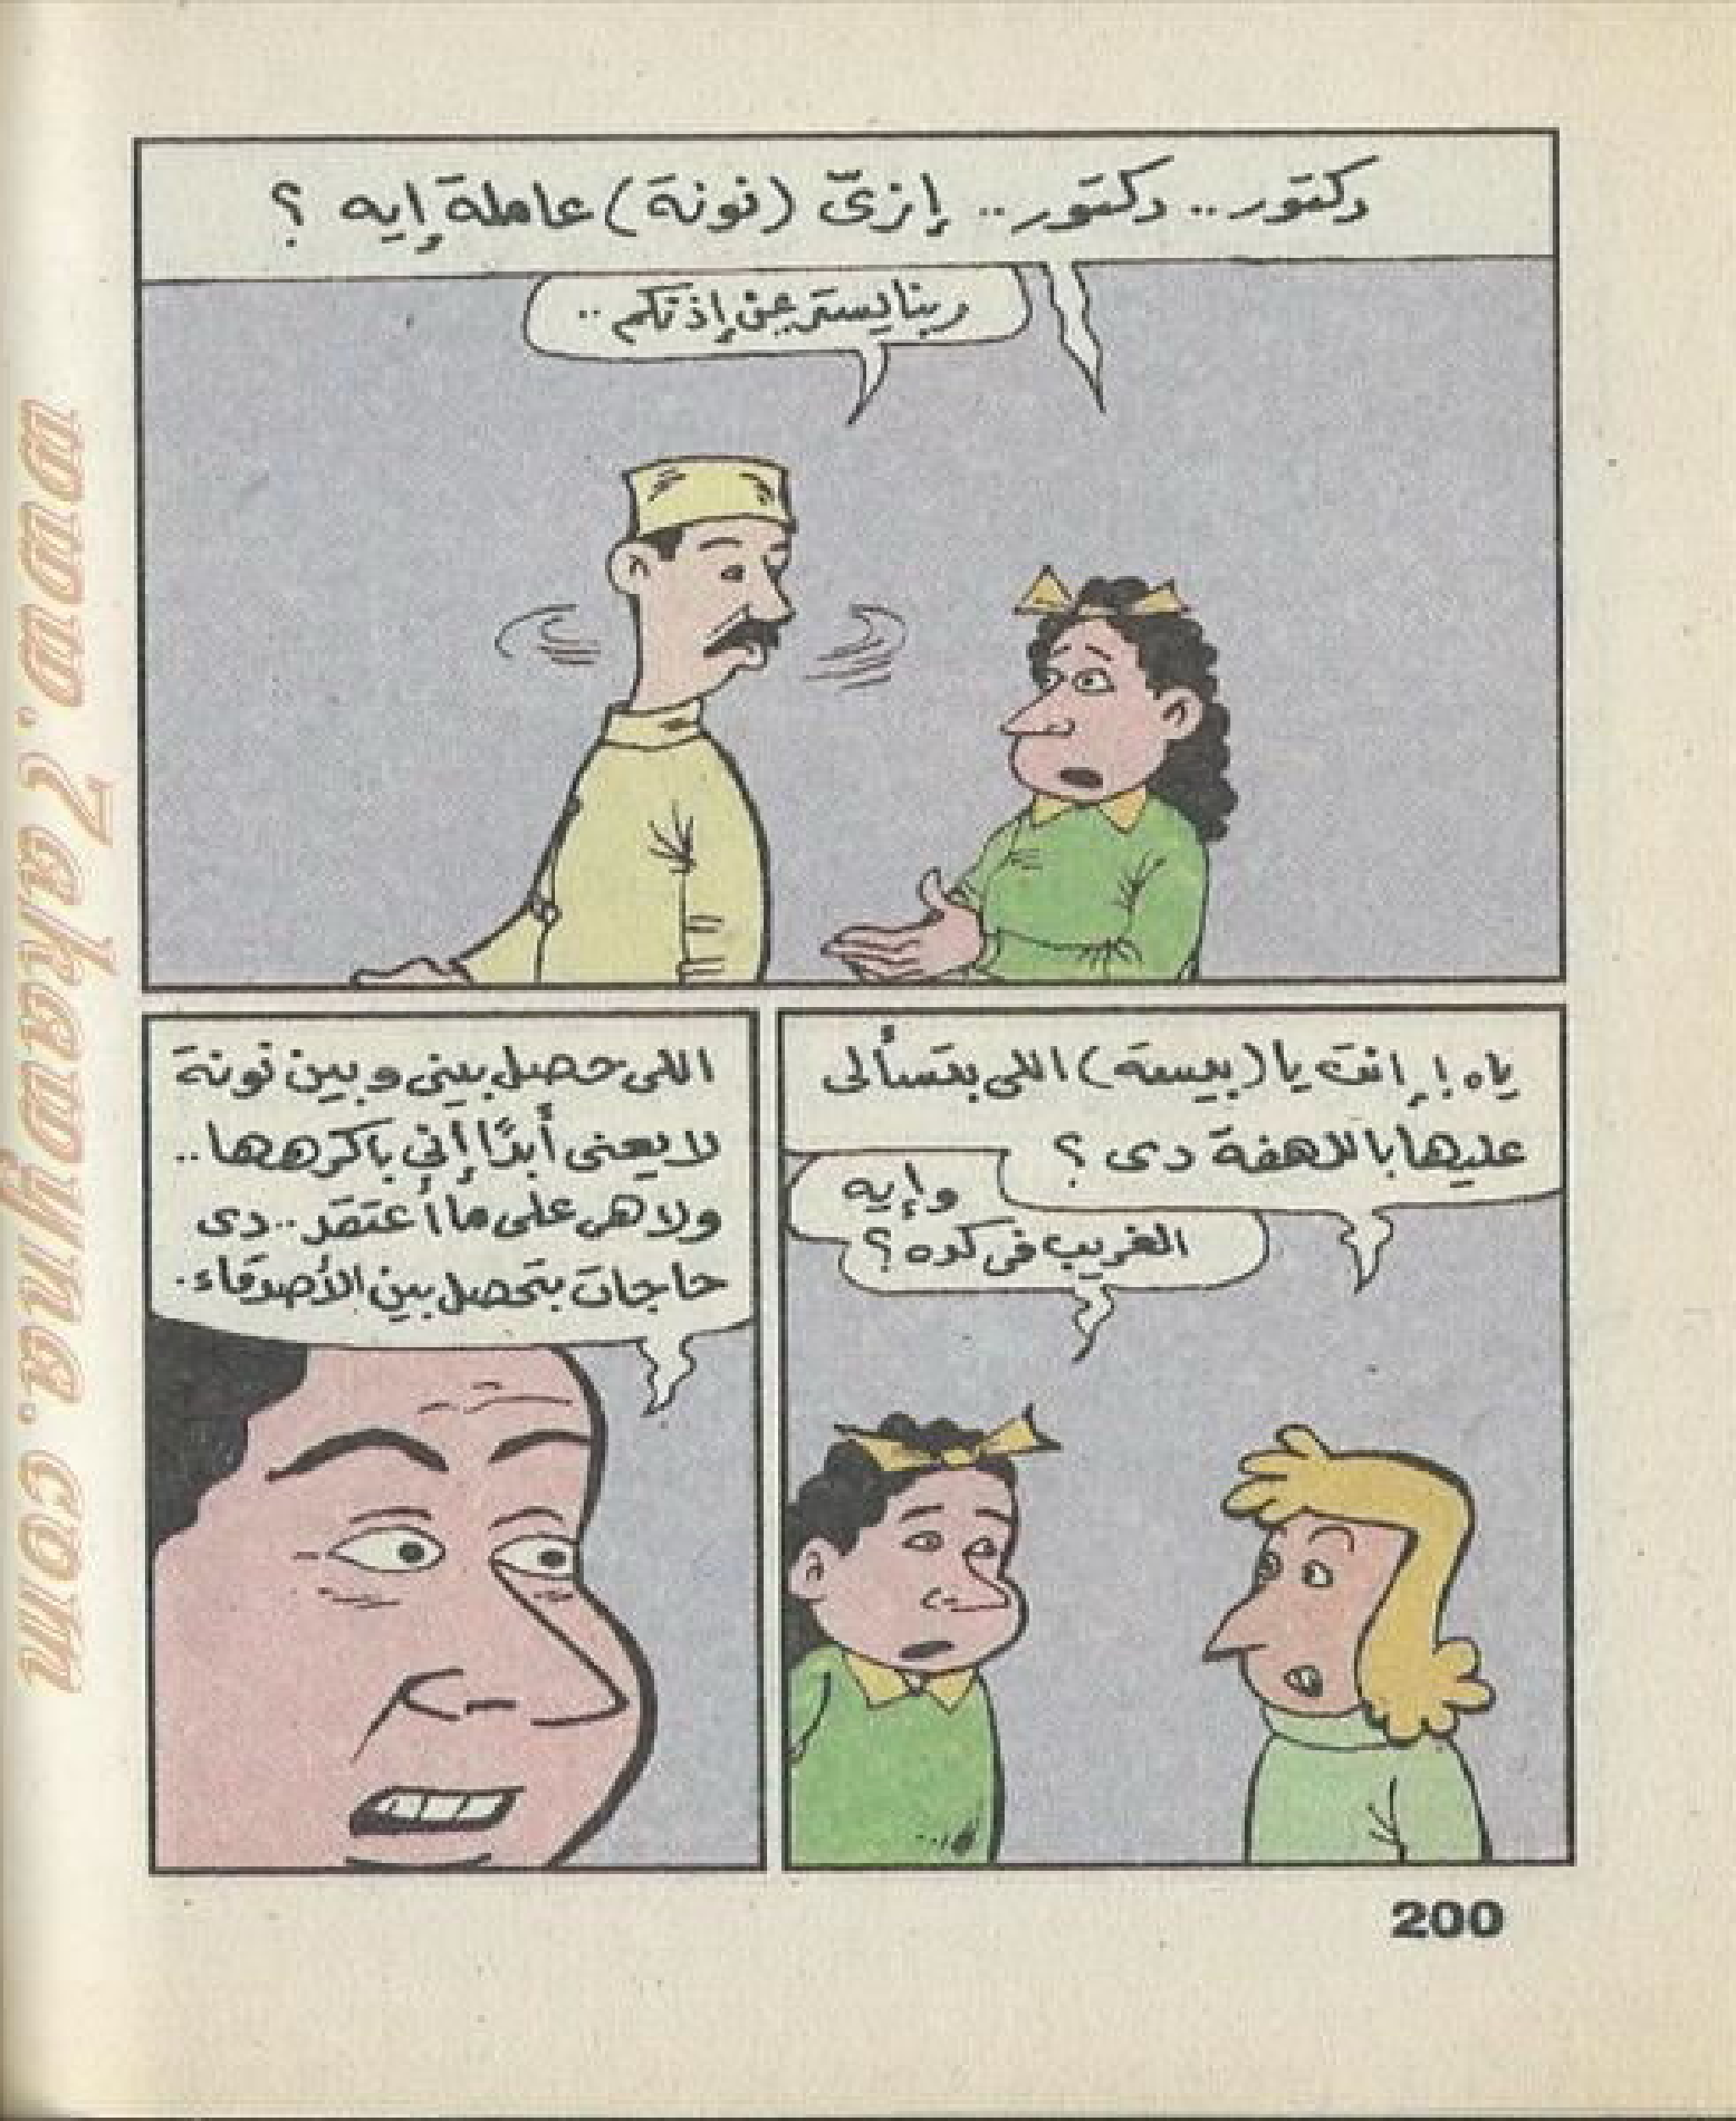 دكتور.. دكتور.. إزىّ (نونة) عاملة إيه ؟
ربنا يستر عن إذنكم ..
ياه ! إنت يا (بيسة) اللى بتسألى
عليها باللهفة دى ؟
وإيه
الغريب فى كده ؟
اللى حصل بينى وبين نونة
لا يعنى أبدًا إنى باكرهها ..
ولا هى على ما أعتقد .. دى
حاجات بتحصل بين الأصدقاء.
200
www.Zakaayuna.com